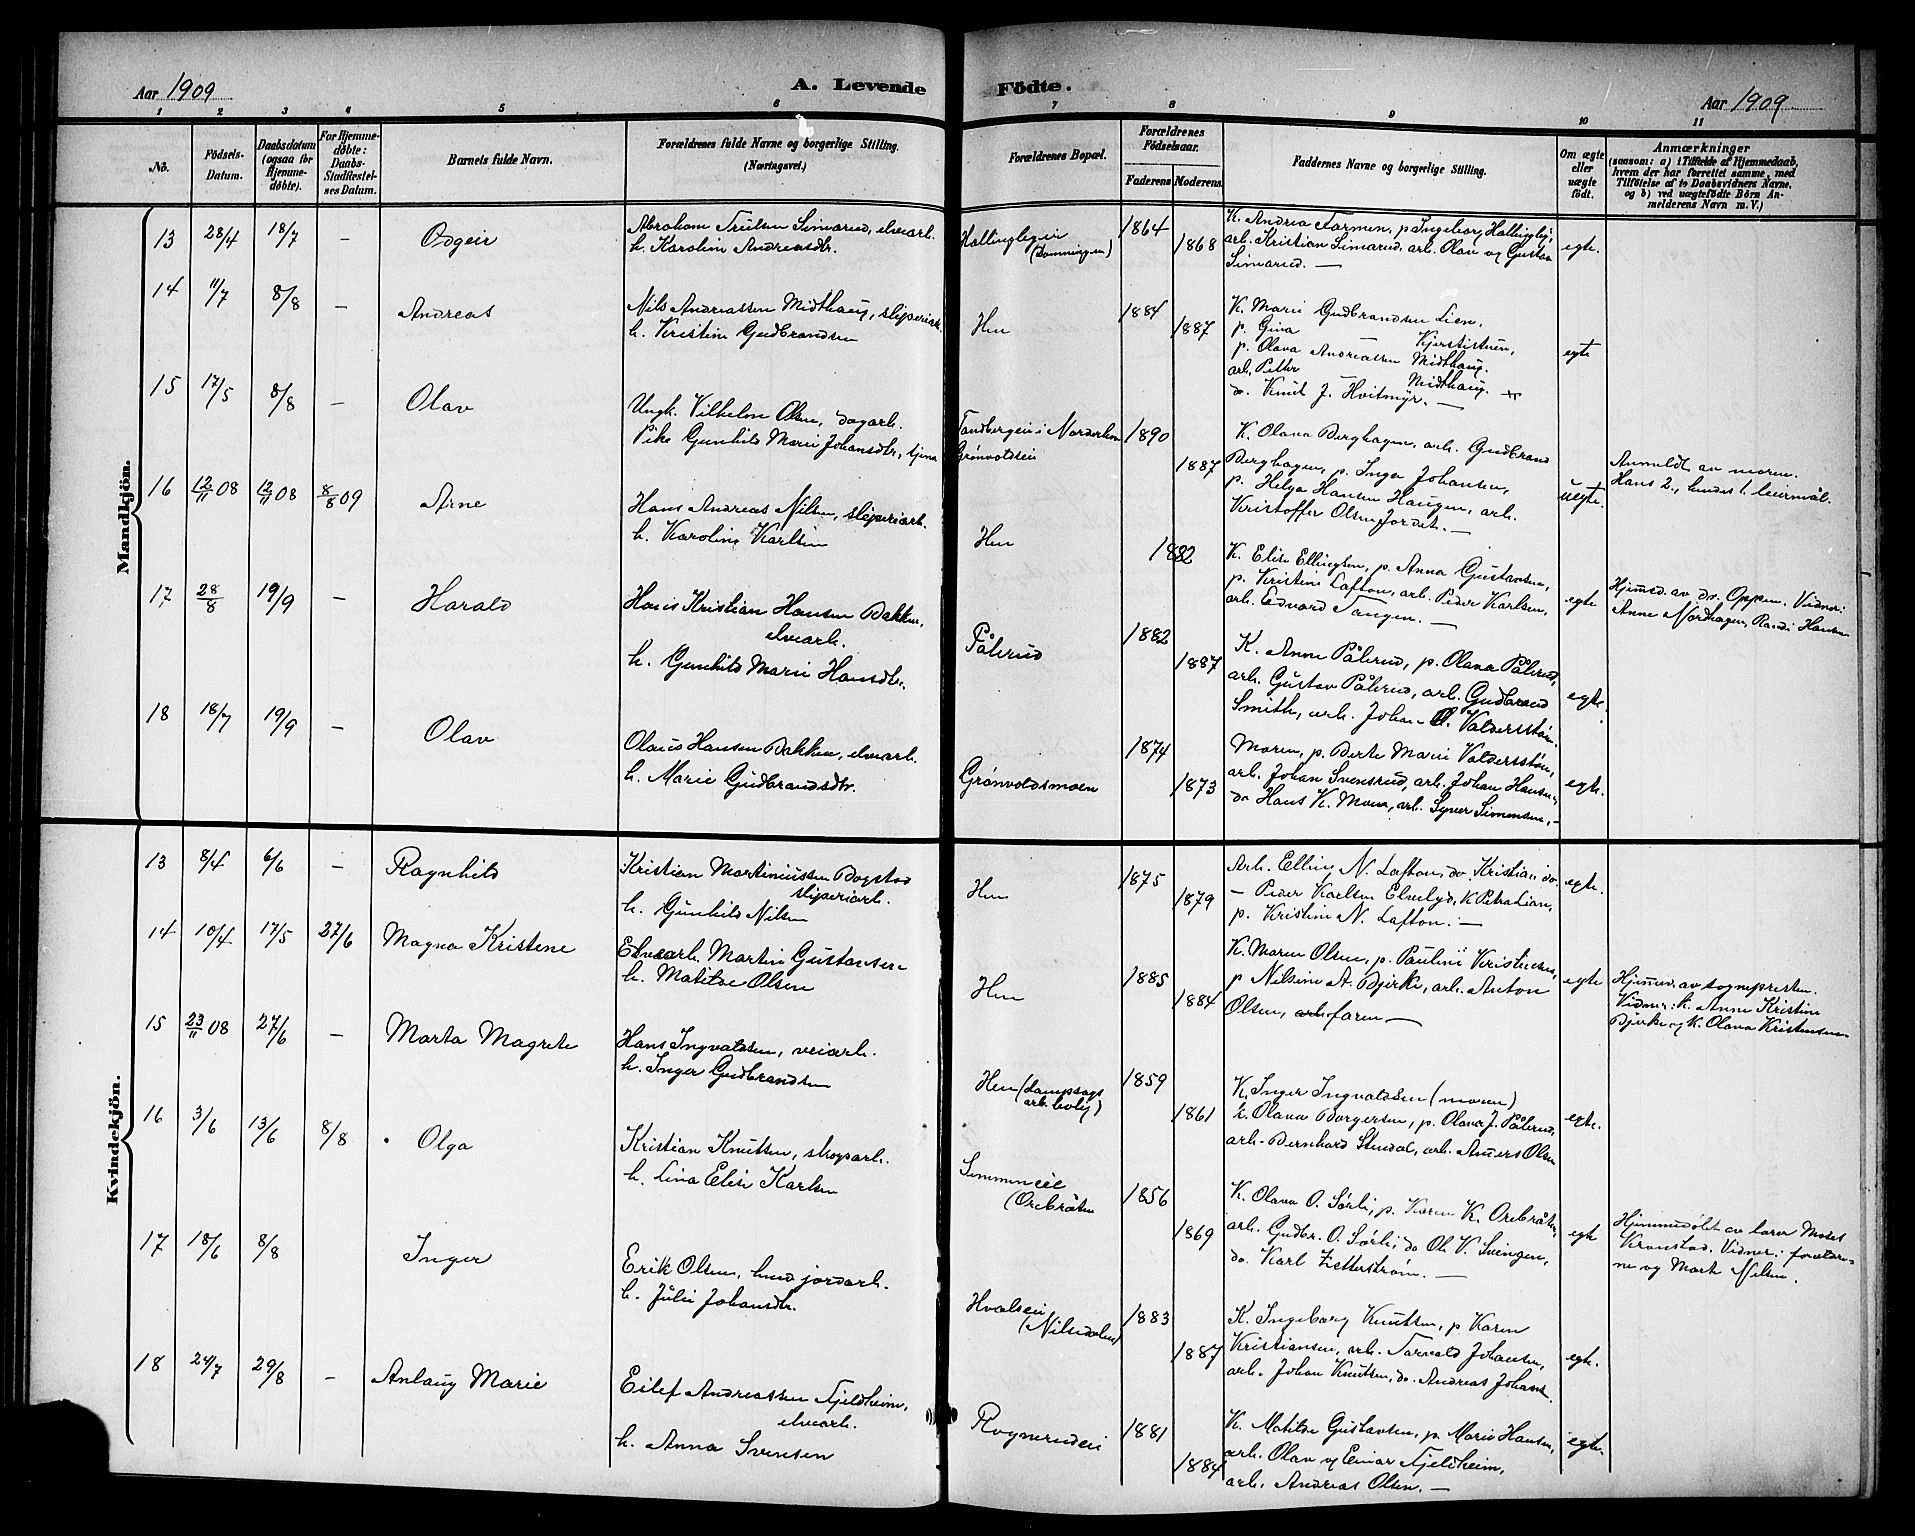 Aar 1909
A. Levende Födte.
Aar 1909
1 2 3 4 5 6 7 8 9 10 11
No.
Födsels-Datum.
Daabsdatum (ogsaa for Hjemme-döbte).
For Hjemme-döbte: Daabs-Stadfæstel-ses Datum.
Barnets fulde Navn.
Forældrenes fulde Navne og borgerlige Stilling. (Næringsvei.)
Forældrenes Bopæl.
Forældrenes Födselsaar.
Faderens. Moderens.
Faddernes Navne og borgerlige Stilling.
Om ægte eller uægte födt.
Anmærkninger
(saasom: a) i Tilfælde af Hjemmedaab, hvem der har forrettet samme, med Tilföielse af to Daabsvidners Navne, og b) ved uægtefödte Börn An-melderens Navn m. V.)
Mandkjön.
13 28/4 18/7 – Odgeir
Abraham Trulsen Simarud, elvearb.
h. Karoline Andreasdtr.
Hallingbyeie
1864
1868
K. Andrea Tormen, p. Ingeborg Hallingby,
arb. Kristian Simarud, arb. Olav og Gustav
Simarud. —
egte.
14 11/7 8/8 – Andreas
Nils Andreassen Midthaug, sliperiarb.
h. Kristine Gudbrandsen
Hen
1884
1887
K. Marie Gudbrandsen Lien,
p. Gina Kjerstistuen,
p. Olava Andreassen Midthaug.
arb. Petter Midthaug.
do. Knut J. Hvitmyr. —
egte
15 17/5 8/8 – Olav
Ungk. Vilhelm Olsen, dagarb.
Pike Gunhild Marie Johansdtr, tjene
Tandbergeie i Norderhov
Grønvoldseie
1890
1887
K. Olava Berghagen, arb. Gudbrand
Berghagen, p. Inga Johansen,
p. Helga Hansen Haugen, arb.
Kristoffer Olsen Jordet. —
uegte.
Anmeldt av moren.
Hans 2., hendes 1. leiermål.
16 12/11 08 12/11 08 8/8 09 Arne
Hans Andreas Nilsen, sliperiarb.
h. Karoline Karlsen
Hen
1882
K. Elise Ellingsen, p. Anna Gustavsen,
p. Kristine Lafton, arb. Peder Karlsen,
arb. Edvard Tangen. —
egte
Hjemmed. av dr. Oppen. Vidner:
Anne Nordhagen, Randi Hansen
17 28/8 19/9 – Harald
Hans Kristian Hansen Bakken,
elvearb.
h. Gunhild Marie Hansdtr.
Pålerud
1882
1887
K. Anne Pålerud, p. Olava Pålerud,
arb. Gustav Pålerud, arb. Gudbrand
Smith, arb. Johan O. Valdersstøen.
egte.
18 18/7 19/9 – Olav
Olaus Hansen Bakken, elvearb.
h. Marie Gudbrandsdtr.
Grønvoldsmoen
1874
1873
Moren, p. Berte Marie Valdersstøen,
arb. Johan Svensrud, arb. Johan Hansen,
do Hans K. Moen, arb. Syver Simensen, –
egte.
Kvindekjön.
13 8/4 6/6 – Ragnhild
Kristian Martiniussen Bogstad
sliperiarb.
h. Gunhild Nilsen
Hen
1875
1879
Arb. Elling N. Lafton, do Kristian do.
– Peder Karlsen Elvelyd, K. Petra Lian,
p. Kristine N. Lafton. —
egte.
14 10/4 17/5 27/6 Magna Kristene
Elvearb. Martin Gustavsen
h. Matilde Olsen
Hen
1885
1884
K. Maren Olsen, p. Pauline Kristensen,
p Nilsine A. Bjerke, arb. Anton
Olsen, arb. faren —
egte
Hjemmed. av sognepresten.
Vidner: k. Anne Kristine
Bjerke og k. Olava Kristensen
15 23/11 08 27/6 – Marta Magrete
Hans Ingvaldsen, veiarb.
h. Inger Gudbrandsen
Hen (dampsags
arb. bolig)
1859
1861
K. Inger Ingvaldsen (moren)
k. Olava Borgersen, p. Olava J. Pålerud,
arb. Bernhard Stendal, arb. Anders Olsen
egte.
16 3/6 13/6 8/8 Olga
Kristian Knutsen, skogsarb.
h. Lina Elise Karlsen
Simmneie
(Orebråten
1856
1869
K. Olava O. Sørli, p. Karen K. Orebråten,
arb. Gudbr. O. Sørli, do Ole K. Svingen,
do. Karl Zetterstrøm. —
egte
Hjemmedøbt av lærer Moses
Kronstad. Vidner: foreldre-
ne og Marte Nilsen.
17 18/6 8/8 Inger
Erik Olsen, jordarb.
h. Julie Johansdtr.
Hvalseie
(Nilsedalen)
1883
1887
K. Ingeborg Knutsen, p Karen
Kristiansen, arb. Torvald Johansen,
arb. Johan Knutsen, do. Andreas Johans.
egte.
18 24/7 29/8 – Anlaug Marie
Eilef Andreassen Fjeldheim,
elvearb.
h. Anna Svensen
Rognerudeie
1881
1884
K. Matilde Gustavsen, p. Marie Hansen,
arb. Olav og Einar Fjeldheim,
arb. Andreas Olsen. —
egte.